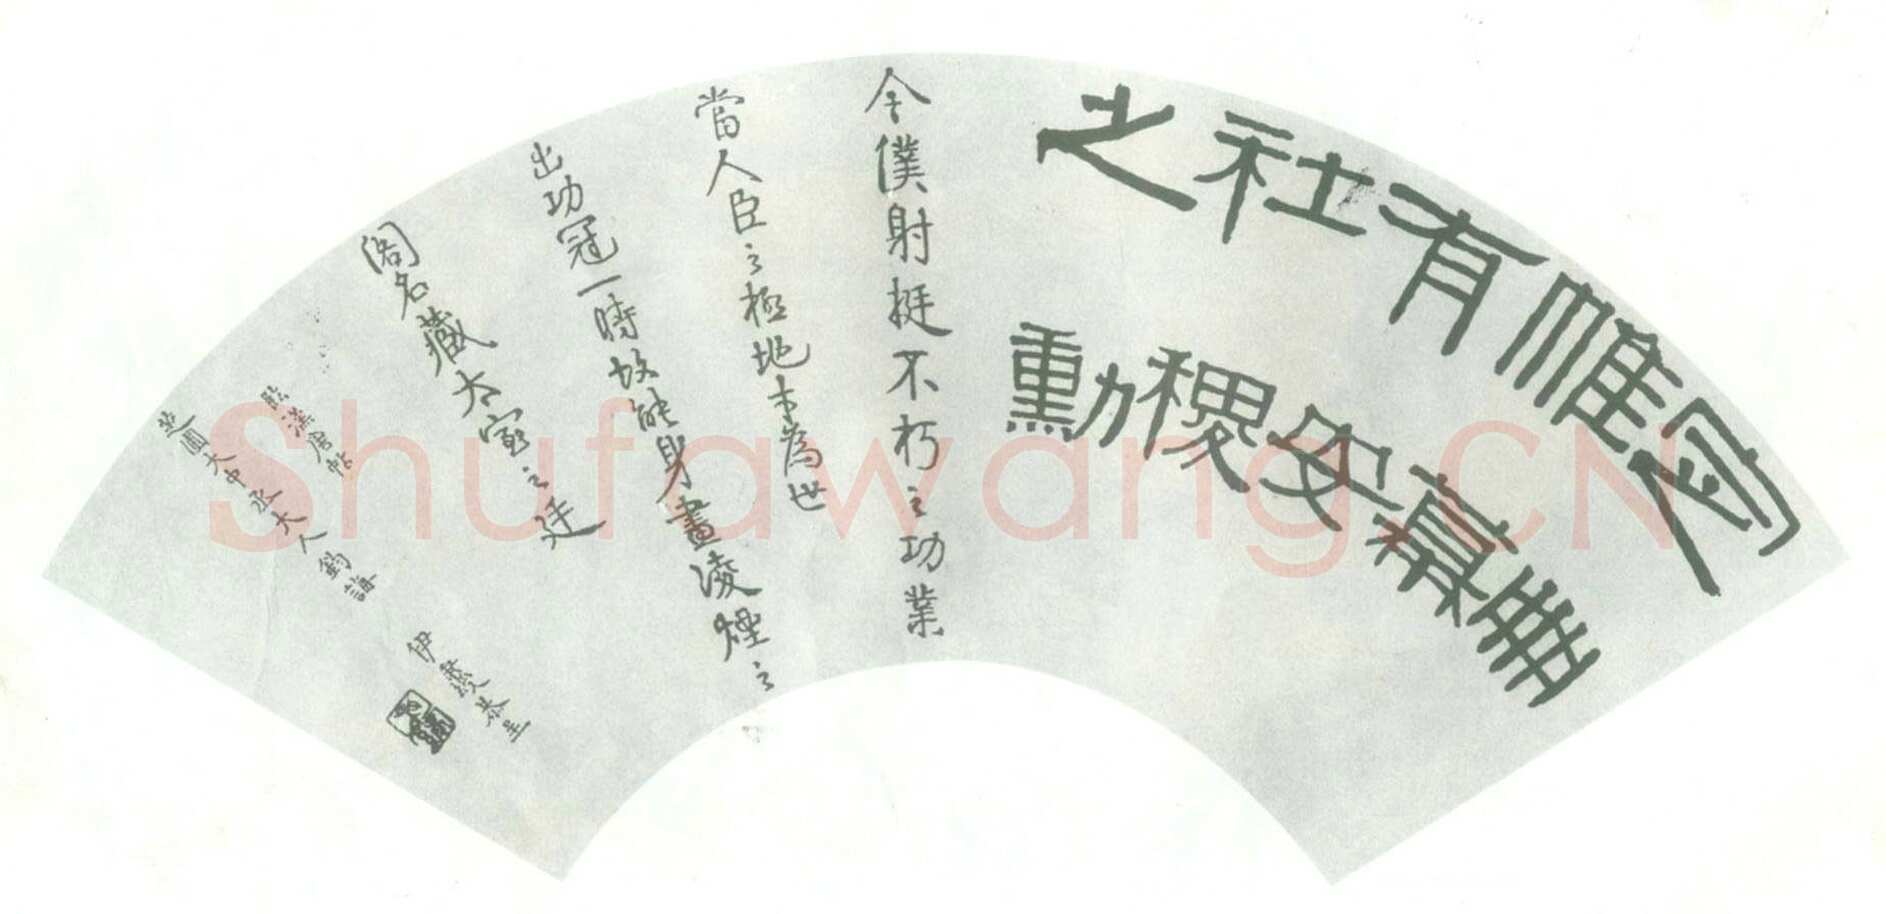 帷幕
有安
社稷
之勳
今僕射挺不朽之功業
當人臣之極地才為世
出功冠一時故能身畫凌煙之
閣名藏太室之廷
臨漢唐帖
芝圃大中丞大人鈞誨
伊秉綬恭呈
Shufawang.CN